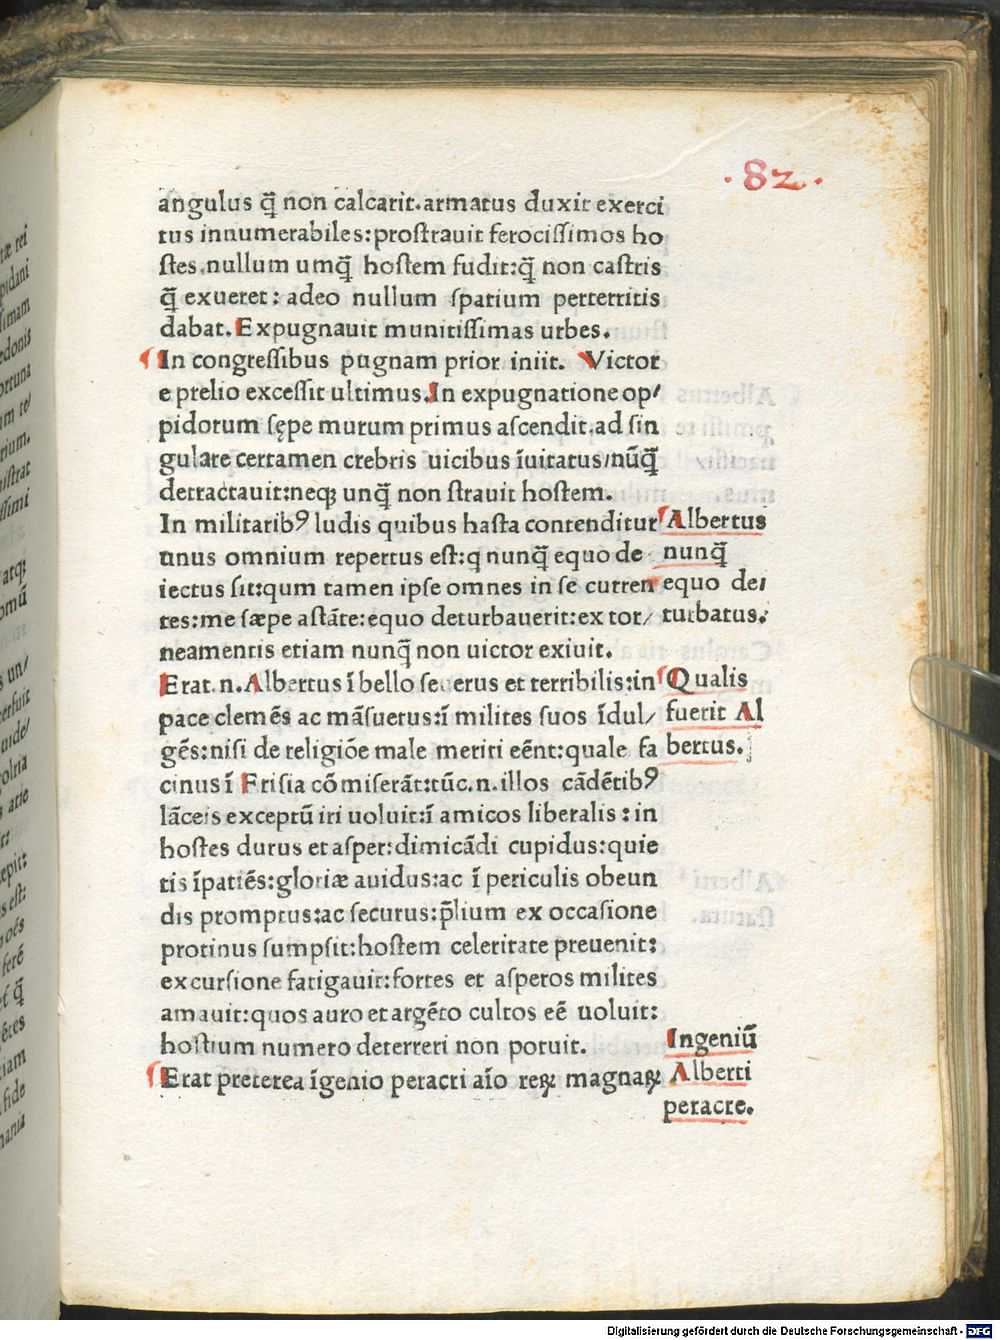 ·82·
angulus q̃ non calcarit.armatus duxit exerci
tus innumerabiles:prostrauit ferocissimos ho
stes.nullum umq̃ hostem fudit:q̃ non castris
q̃ exueret: adeo nullum spatium perterritis
dabat.Expugnauit munitissimas urbes.
In congressibus pugnam prior iniit. Victor
e prelio excessit ultimus.In expugnatione op/
pidorum sępe murum primus ascendit,ad sin
gulare certamen crebris uicibus ĩuitatus/nũq̃
detractauit:neqꝫ unq̃ non strauit hostem.
In militaribꝰ ludis quibus hasta contenditur
unus omnium repertus est:q nunq̃ equo de
iectus sit:qum tamen ipse omnes in se curren
tes:me sæpe astãte:equo deturbauerit:ex tor/
neamentis etiam nunq̃ non uictor exiuit.
Erat.n.Albertus ĩ bello seuerus et terribilis:in
pace clemẽs ac mãsuetus:ĩ milites suos ĩdul/
gẽs:nisi de religiõe male meriti eẽnt:quale fa
cinus ĩ Frisia cõmiserãt:tũc.n.illos cãdẽtibꝰ
lãceis exceptũ iri uoluit:ĩ amicos liberalis : in
hostes durus et asper:dimicãdi cupidus:quie
tis ĩpatiẽs:gloriæ auidus:ac ĩ periculis obeun
dis promptus:ac securus:p̃lium ex occasione
protinus sumpsit:hostem celeritate preuenit:
excursione fatigauit:fortes et asperos milites
amauit:quos auro et argẽto cultos eẽ uoluit:
hostium numero deterreri non potuit.
Erat preterea ĩgenio peracri aĩo reꝝ magnaꝝ
Albertus
nunq̃
equo de/
turbatus.
Qualis
fuerit Al
bertus.
Ingeniũ
Alberti
peracre.
Digitalisierung gefördert durch die Deutsche Forschungsgemeinschaft - DFG